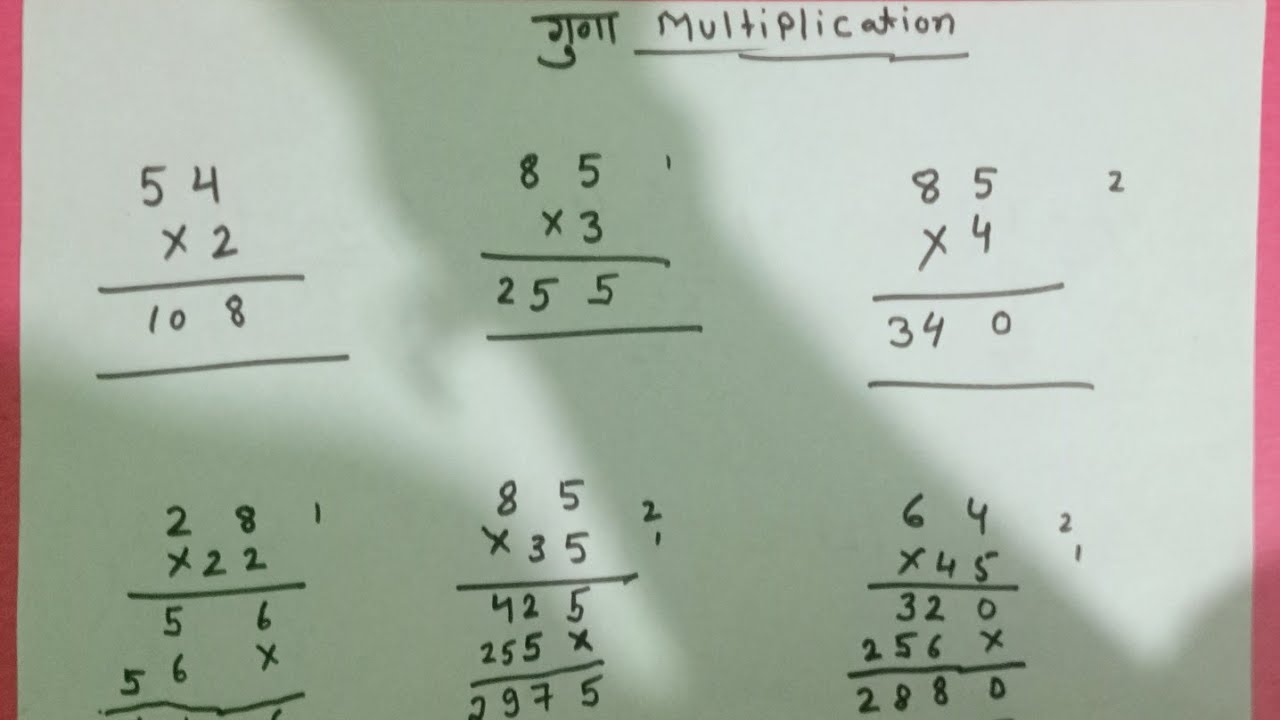 गुणा Multiplication
5 4
× 2
10 8
8 5 1
× 3
25 5
8 5 2
× 4
34 0
2 8 1
× 2 2
5 6
5 6 ×
8 5 2
× 3 5 1
42 5
25 5 ×
297 5
6 4 2
× 4 5 1
32 0
256 ×
288 0